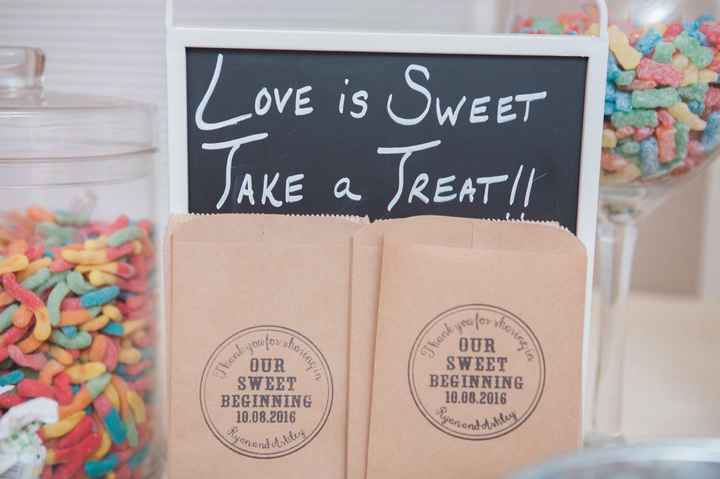 LOVE is SWEET
TAKE a TREAT!!
Thank you for sharing in
OUR
SWEET
BEGINNING
10.08.2016
Ryan and Ashley
Thank you for sharing in
OUR
SWEET
BEGINNING
10.08.2016
Ryan and Ashley